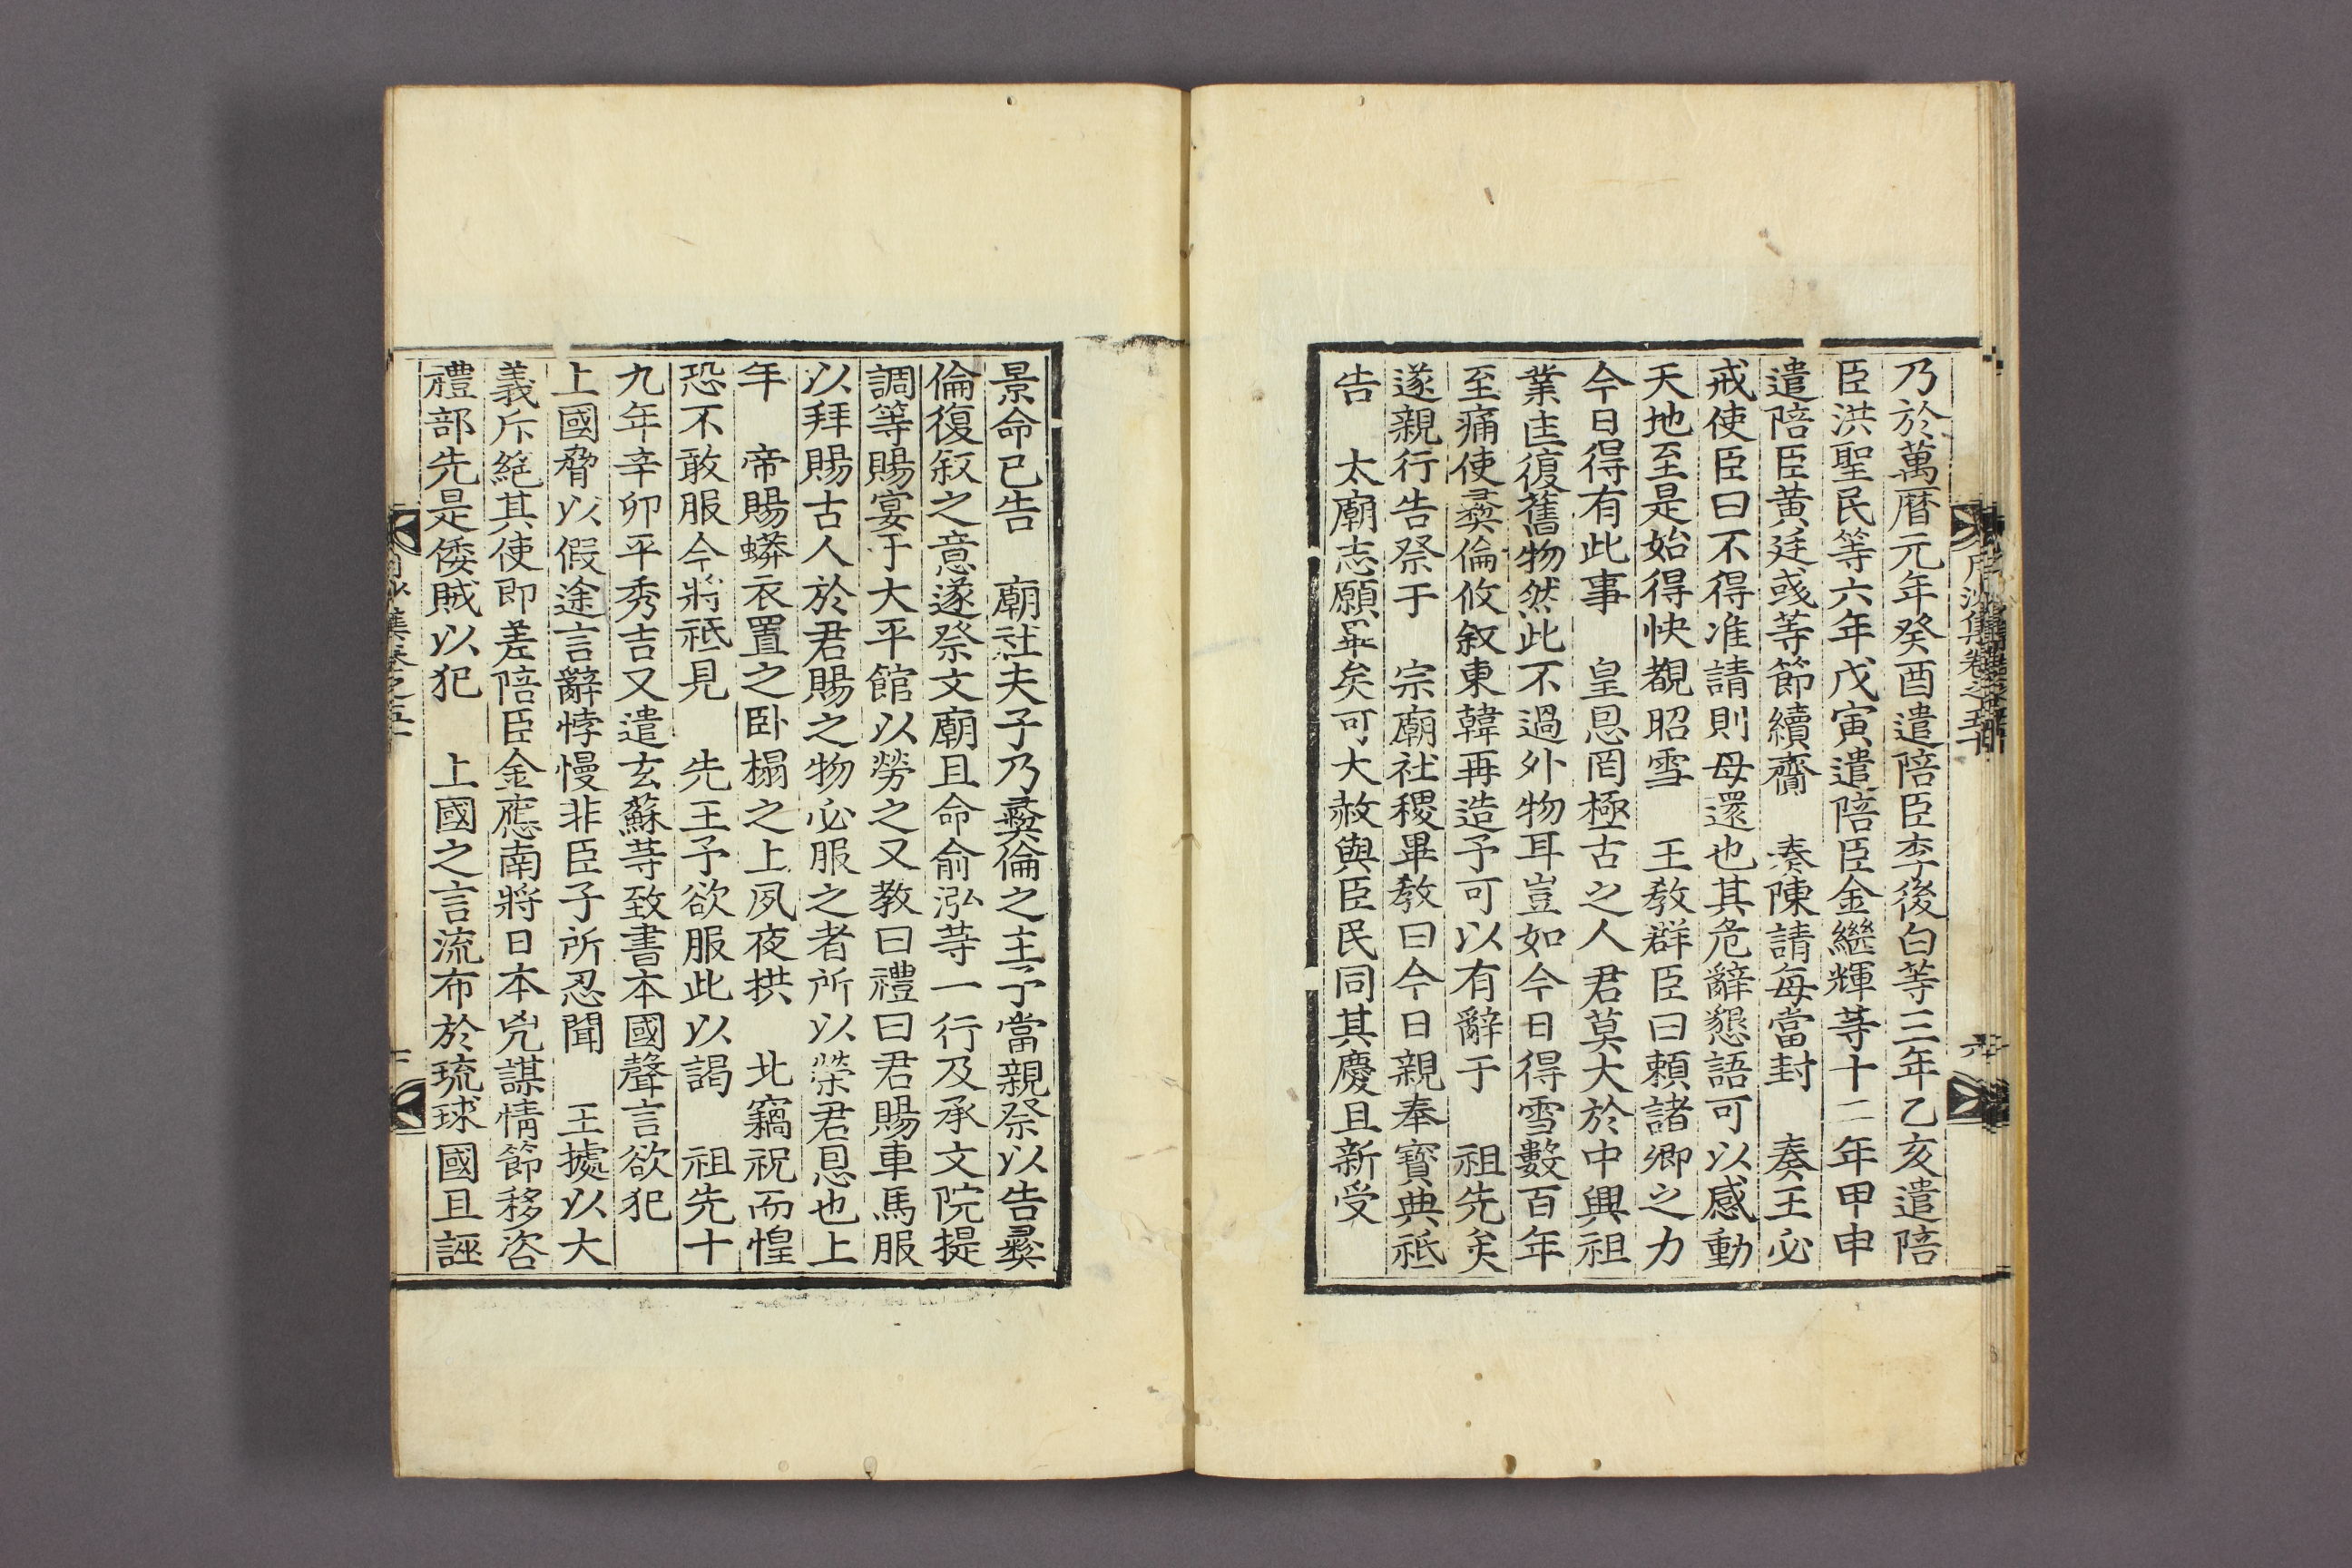 乃於萬曆元年癸酉遣陪臣李後白等三年乙亥遣陪
臣洪聖民等六年戊寅遣陪臣金繼輝䓁十二年甲申
遣陪臣黃廷彧等節續齎 奏陳請每當封 奏王必
戒使臣曰不得准請則毋還也其危辭懇語可以感動
天地至是始得快覩昭雪 王敎群臣曰賴諸卿之力
今日得有此事 皇恩罔極古之人君莫大於中興祖
業匡復舊物然此不過外物耳豈如今日得雪數百年
至痛使彝倫攸叙東韓再造予可以有辭于 祖先矣
遂親行告祭于 宗廟社稷畢敎曰今日親奉寶典祗
告 太廟志願畢矣可大赦與臣民同其慶且新受
景命已告 廟社夫子乃彝倫之主予當親祭以告彝
倫復叙之意遂祭文廟且命俞泓䓁一行及承文院提
調等賜宴于大平館以勞之又教曰禮曰君賜車馬服
以拜賜古人於君賜之物必服之者所以榮君恩也上
年 帝賜蟒衣置之卧榻之上夙夜拱 北竊祝而惶
恐不敢服今將祗見 先王予欲服此以謁 祖先十
九年辛卯平秀吉又遣玄蘇䓁致書本國聲言欲犯
上國脅以假途言辭悖慢非臣子所忍聞 王據以大
義斥絕其使即差陪臣金應南將日本兇謀情節移咨
禮部先是倭賊以犯 上國之言流布於琉球國且誣